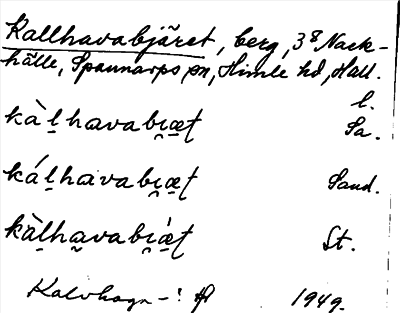 Kallhavabjäret, berg, 3⁸ Nack-
hälle, Spannarps sn, Himle hd, Hall.
l.
kàl̠havabi̯æ̠ƭ Sa.
kál̠havabi̯æ̠ƭ Sand.
kàl̠havabi̯æ̠ƭ St.
Kalvhagn-! 1949.